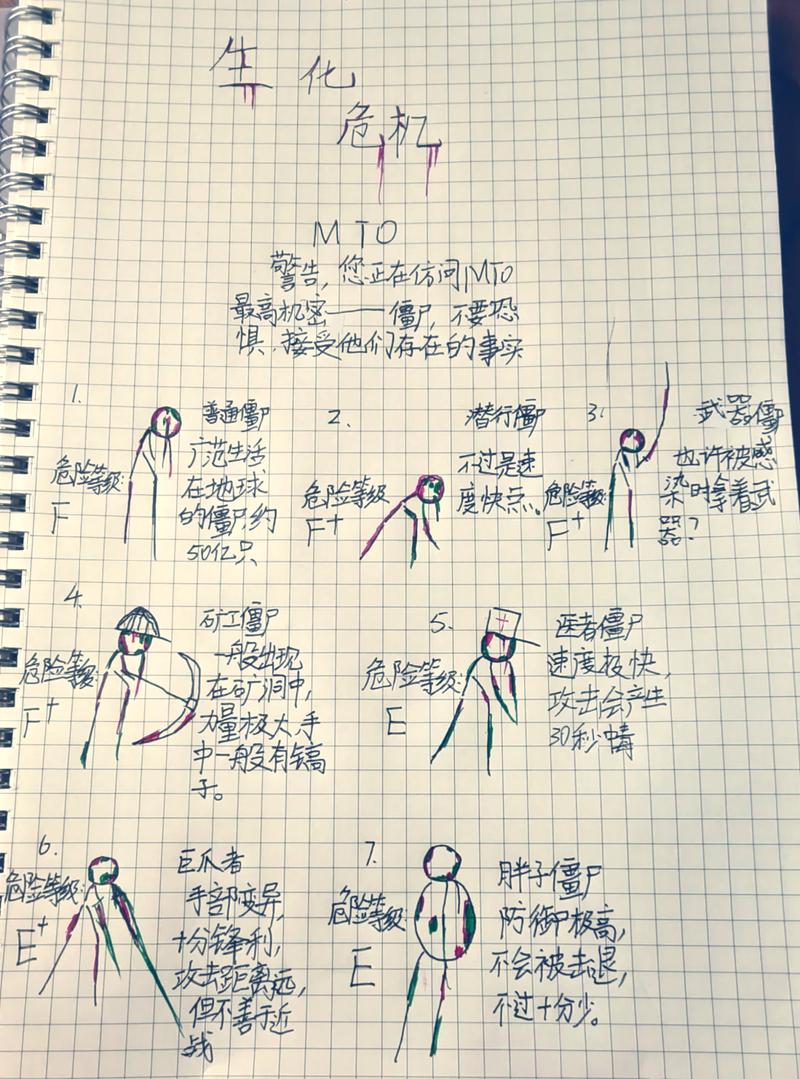 生化
危机
MTO
警告,您正在访问MTO
最高机密——僵尸,不要恐
惧,接受他们存在的事实
1.
普通僵尸
危险等级:
F
广范生活
在地球
的僵尸,约
50亿只
2.
潜行僵尸
危险等级
F+
不过是速
度快点。
3.
武器僵尸
危险等级:
F+
也许被感
染时拿着武
器?
4.
矿工僵尸
危险等级:
F+
一般出现
在矿洞中,
力量极大,手
中一般有镐
子。
5.
医者僵尸
危险等级:
E
速度极快,
攻击会产生
30秒
6.
巨爪者
危险等级:
E+
手部变异,
十分锋利,
攻击距离远,
但不善于近
战
7.
胖子僵尸
危险等级:
E
防御极高,
不会被击退,
不过十分少。